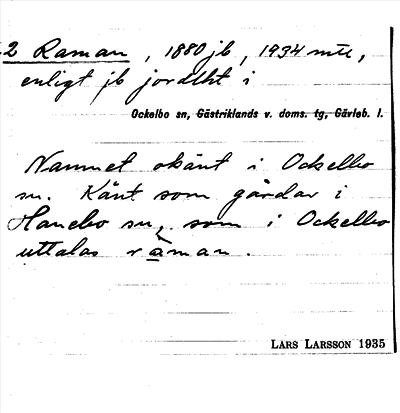 2 Raman, 1880 jb, 1934 mtl,
enligt jb jordlht i
Ockelbo sn, Gästriklands v. doms. tg, Gävleb. l.
Namnet okänt i Ockelbo
sn. Känt som gårdar i
Hanebo sn, som i Ockelbo
uttalas råman.
LARS LARSSON 1935